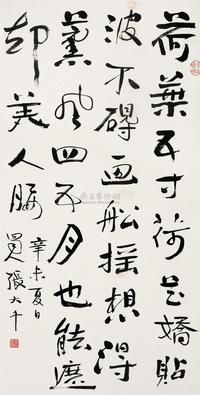 荷葉五寸荷花嬌貼
波不碍画船摇想得
薰風四五月也能遮
却美人腰
辛未夏日
爰張大千